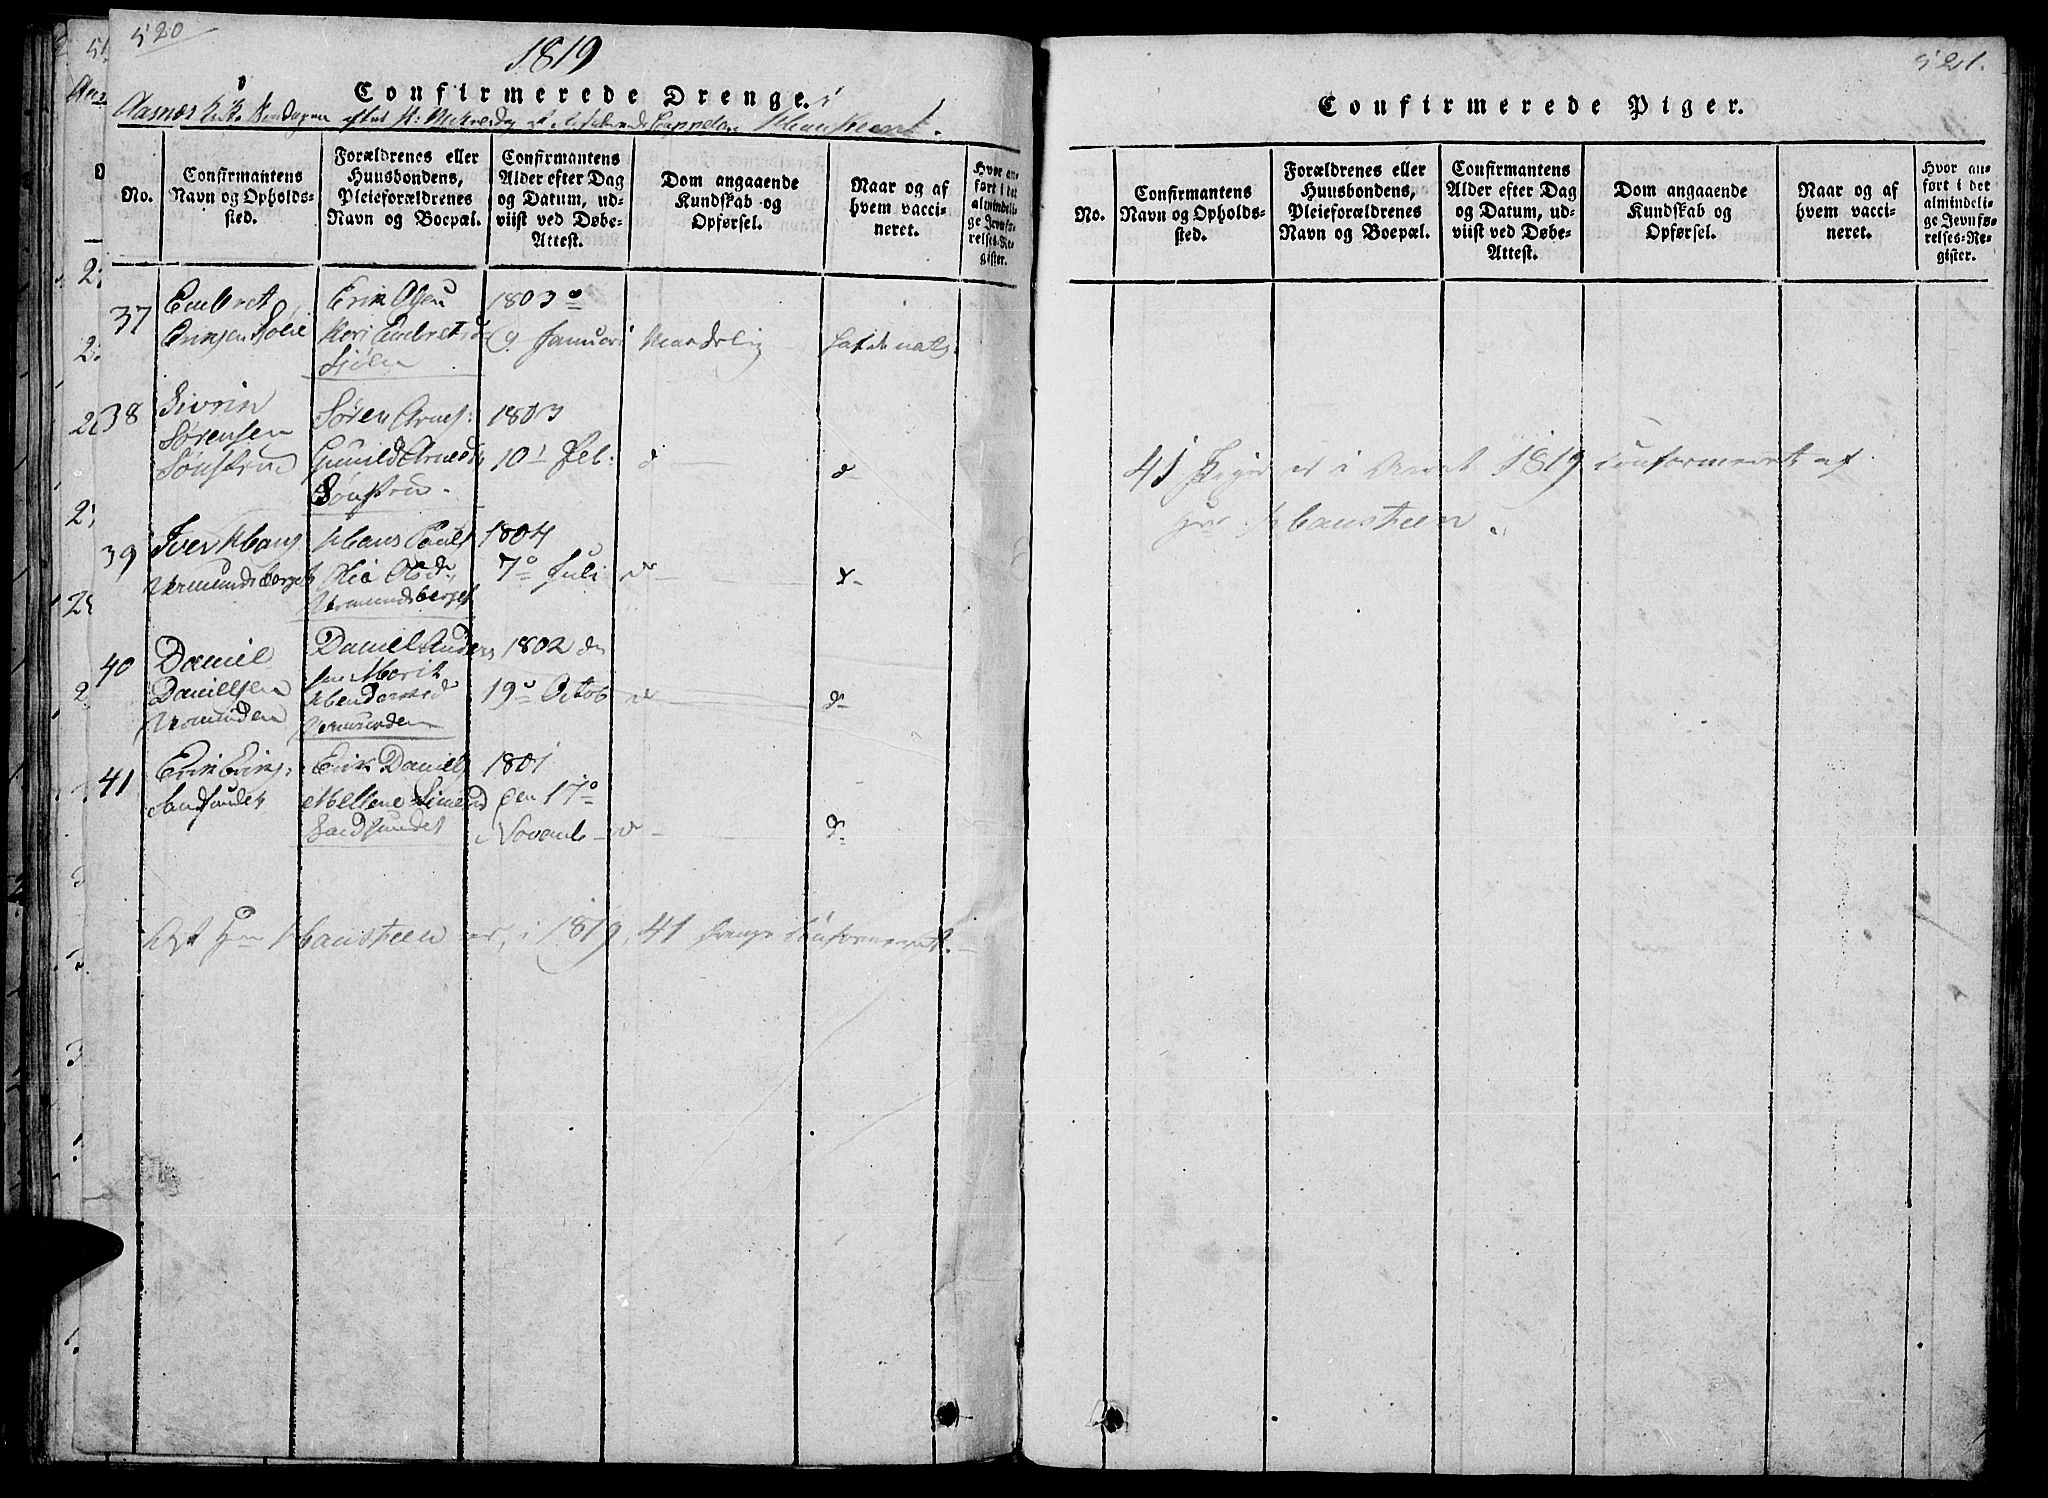 520
1819
Confirmerede Drenge i
Aasnæs Kirke Søndagen efter St. Mikelsdag af Hausteen.
No.
Confirmantens Navn og Opholdssted.
Forældrenes eller Huusbondens, Pleieforældrenes Navn og Boepæl.
Confirmantens Alder efter Dag og Datum, udviist ved Døbe-Attest.
Dom angaaende Kundskab og Opførsel.
Naar og af hvem vaccineret.
Hvor anført i det almindelige Jevnførelses-Register.
37 Embret Erik Olsen 1803
Kari Embretsd 9 Januari Maadelig
38 Sivrin Søren Arnes: 1803
Sørensen Gunild Arnesd 10 Feb: d d
Sønsterud Sønsterud
39 Iver Hans Hans Pouls 1804
Vermundsberget Olia Olsd 7 Juli d d
Vermundsberget
40 Daniel Daniel Anders 1802 den
Danielsen sen Marit
Hendersd 19 Octob d d
Vermunden Vermunden
41 Erik Eriks: Erik Daniels 1801
Sandsundet Mellene Simensd den 17
Sandsundet Novemb d d
Hr Hausteen er i 1819, 41 Drenge confirmeret.
521.
Confirmerede Piger.
No.
Confirmantens Navn og Opholdssted.
Forældrenes eller Huusbondens, Pleieforældrenes Navn og Boepæl.
Confirmantens Alder efter Dag og Datum, udviist ved Døbe-Attest.
Dom angaaende Kundskab og Opførsel.
Naar og af hvem vaccineret.
Hvor anført i det almindelige Jevnførelses-Register.
41 Piger er i Aaret 1819 confirmeret af
Hausteen.